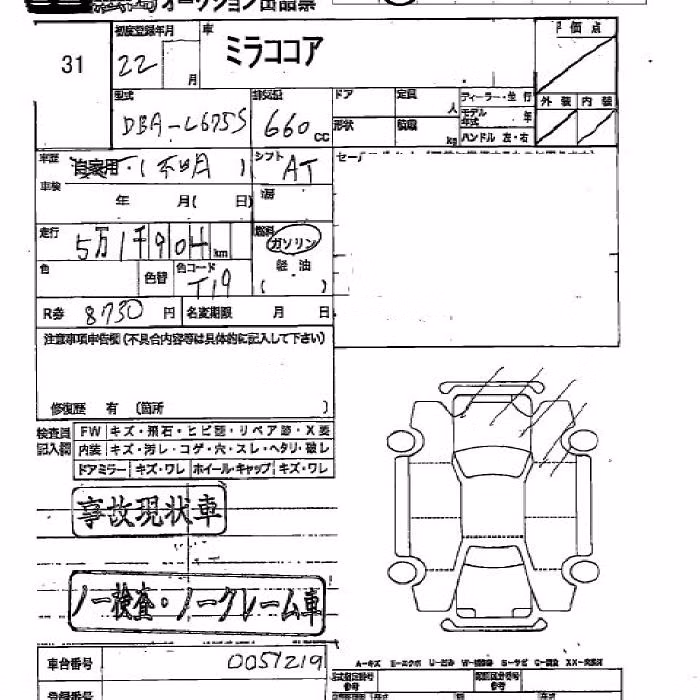 オークション出品票
31
初度登録年月
22
月
車
ミラココア
評価点
型式
DBA-L675S
排気量
660 cc
ドア
定員
人
形状
積載
kg
ディーラー・並行
モデル年式
年
ハンドル 左・右
外装
内装
車歴
自家用
シフト
AT
車検
年
月(
日)
走行
5万1千9 0 km
燃料
ガソリン
軽油
( )
色
色替
色コード
T19
R券
8730
円
名変期限
月
日
注意事項申告欄(不具合内容等は具体的に記入して下さい)
修復歴 有 (箇所 )
検査員記入欄
FW
キズ・飛石・ヒビ割・リペア跡・X要
内装
キズ・汚レ・コゲ・穴・スレ・ヘタリ・破レ
ドアミラー
キズ・ワレ
ホイールキャップ
キズ・ワレ
事故現状車
ノー検査・ノークレーム車
車台番号
0057219
登録番号